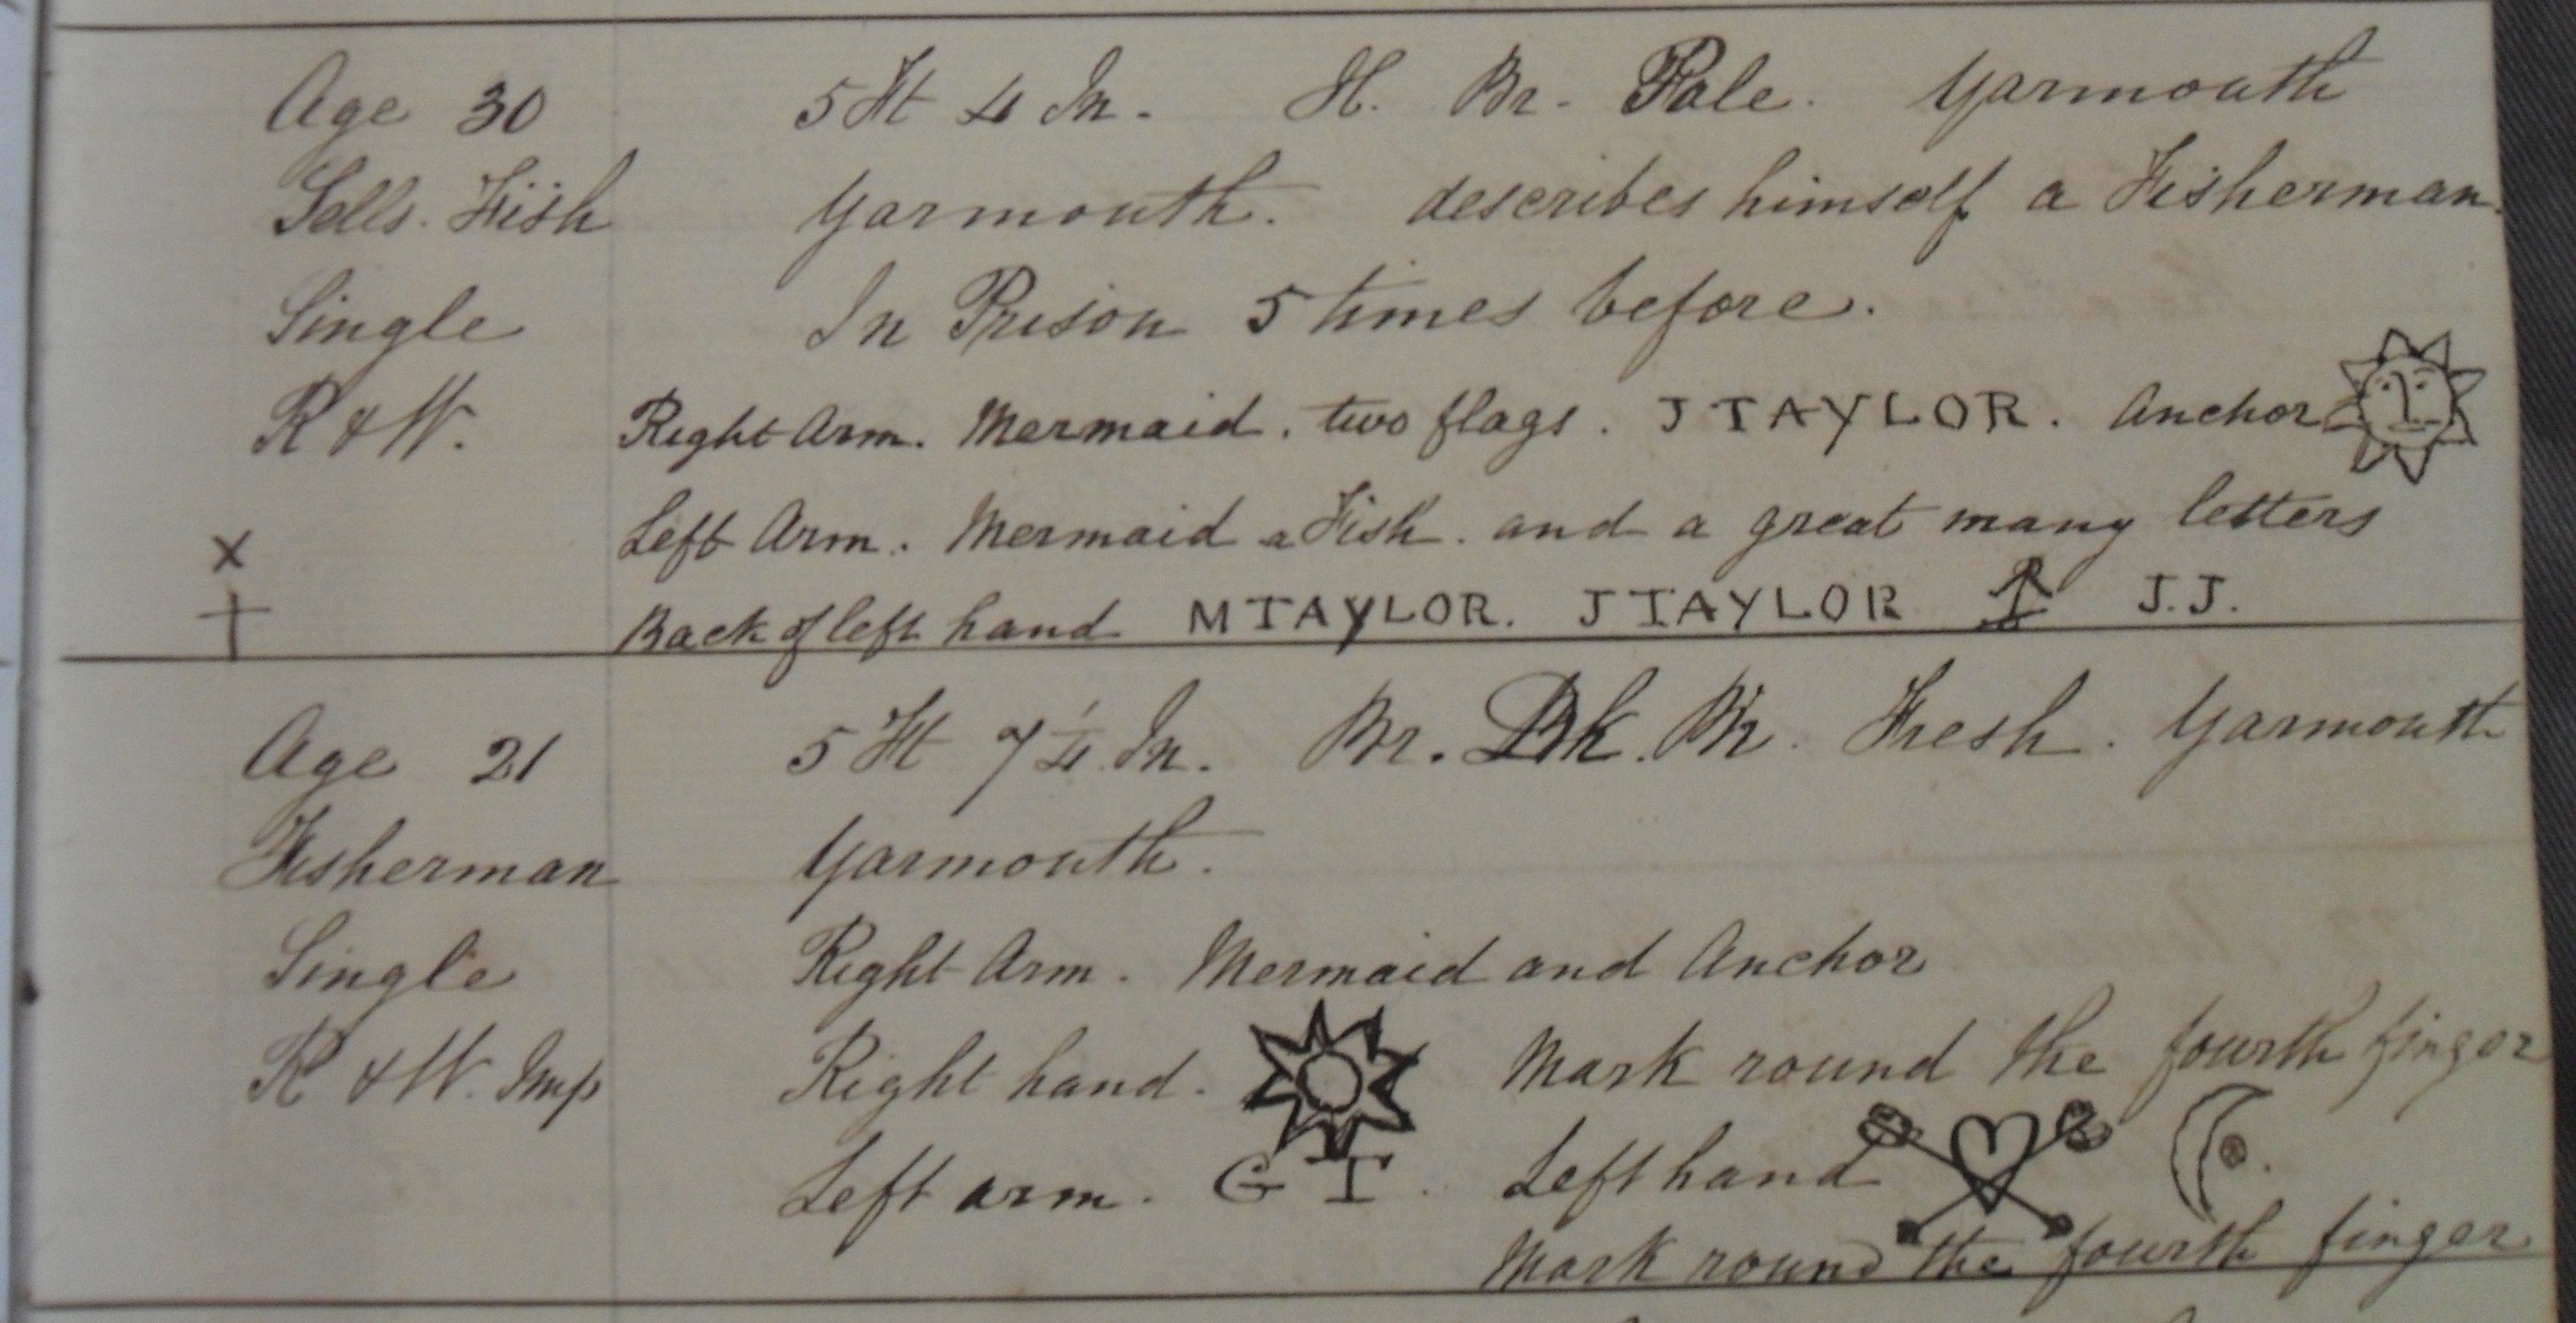 Age 30 5 Ft 4 In. H. Br. Pale. Yarmouth
Sells. Fish Yarmouth. describes himself a Fisherman.
Single In Prison 5 times before.
R & W. Right Arm. Mermaid. two flags. J TAYLOR. Anchor
Left Arm. Mermaid a Fish. and a great many letters
X
Back of left hand M TAYLOR. J TAYLOR J.J.
Age 21 5 Ft 7 1/4 In. Br. Dk. Br. Fresh. Yarmouth
Fisherman Yarmouth.
Single Right Arm. Mermaid and Anchor
R & W. Imp Right hand. Mark round the fourth finger
Left arm. G T. Left hand
Mark round the fourth finger